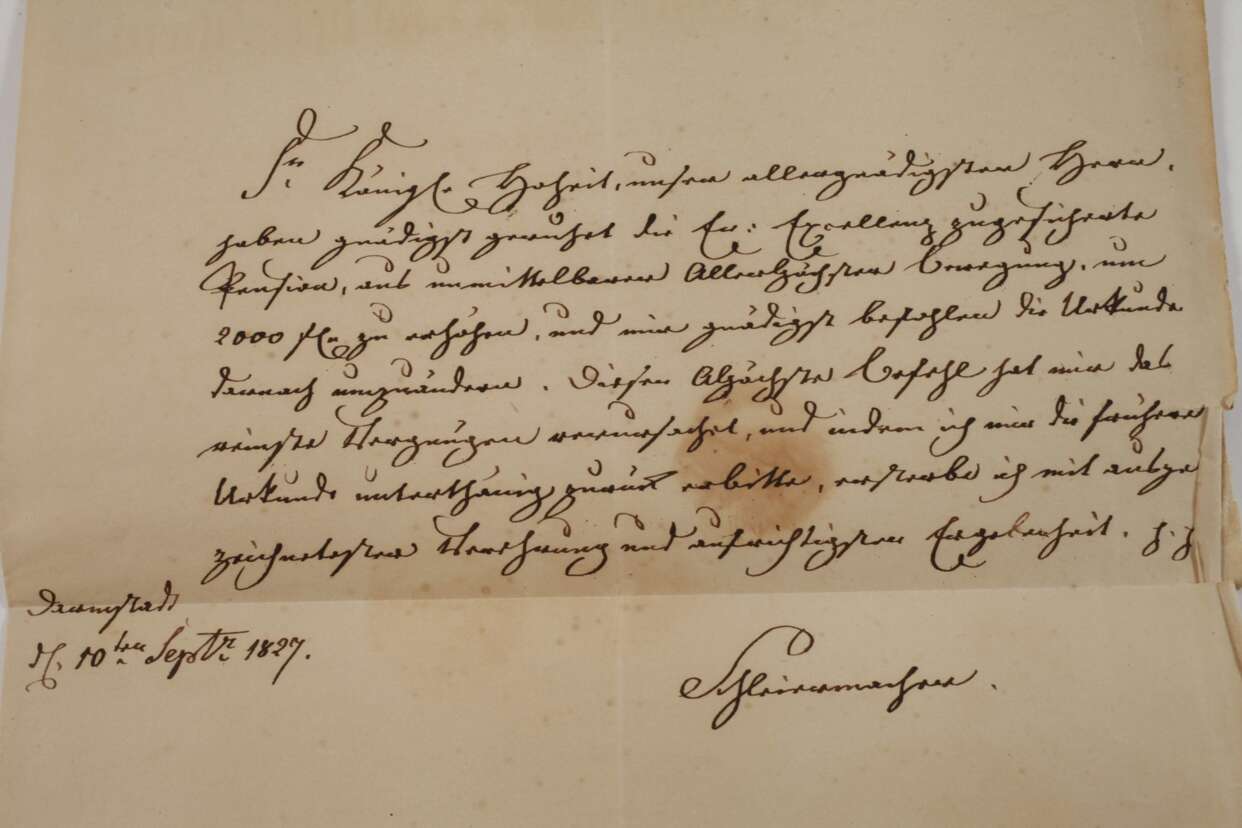 Sr. Königl. Hoheit, unser allergnädigster Herr,
haben gnädigst geruhet die Ew: Excellenz zugesicherte
Pension, aus unmittelbarer Allerhöchster Bewegung, um
2000 fl. zu erhöhen, und mir gnädigst befohlen die Urkunde
darnach umzuändern. Dieser Alhöchste Befehl hat mir das
reinste Vergnügen verursachet, und indem ich mir die frühere
Urkunde unterthänig zurück erbitte, ersterbe ich mit ausge
zeichnetester Verehrung und aufrichtigster Ergebenheit.
Darmstadt
d. 10ten Septr. 1827.
Schleiermacher.